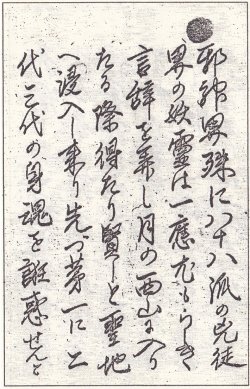 邪神界殊に八十八派の兇徒
界の妖霊は一應尤もらしき
言辞を弄し月の西山に入り
たる際得たり賢しと聖地
へ浸入し来り先づ第一に二
代三代の身魂を誑惑せんと